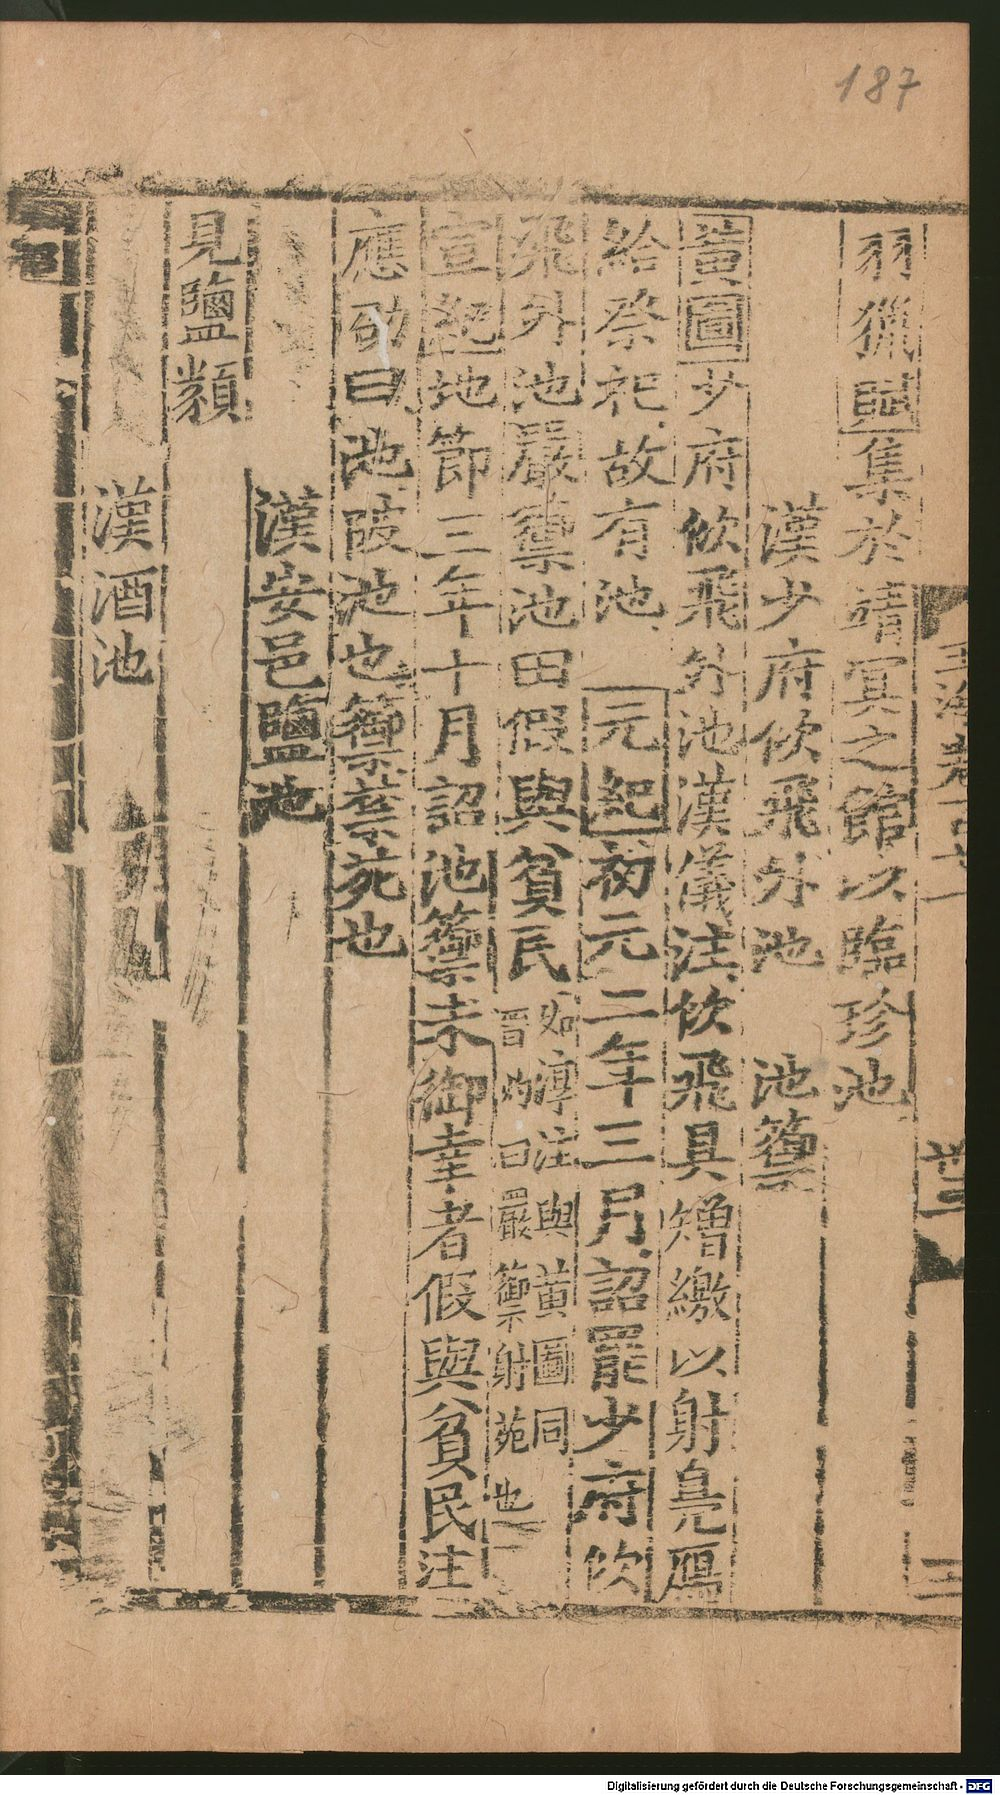 187
玉海卷百七十一
廿三
三
羽獵賦集於靖冥之館以臨珍池
漢少府佽飛外池 池籞
黃圖少府佽飛外池漢儀注佽飛具矰繳以射鳧鴈
給祭祀故有池 元紀初元二年三月詔罷少府佽
飛外池嚴籞池田假與貧民如淳注與黃圖同
晋灼曰嚴籞射苑也
宣紀地節三年十月詔池籞未御幸者假與貧民注
應劭曰池陂池也籞禁苑也
漢安邑鹽池
見鹽類
漢酒池
Digitalisierung gefördert durch die Deutsche Forschungsgemeinschaft - DFG